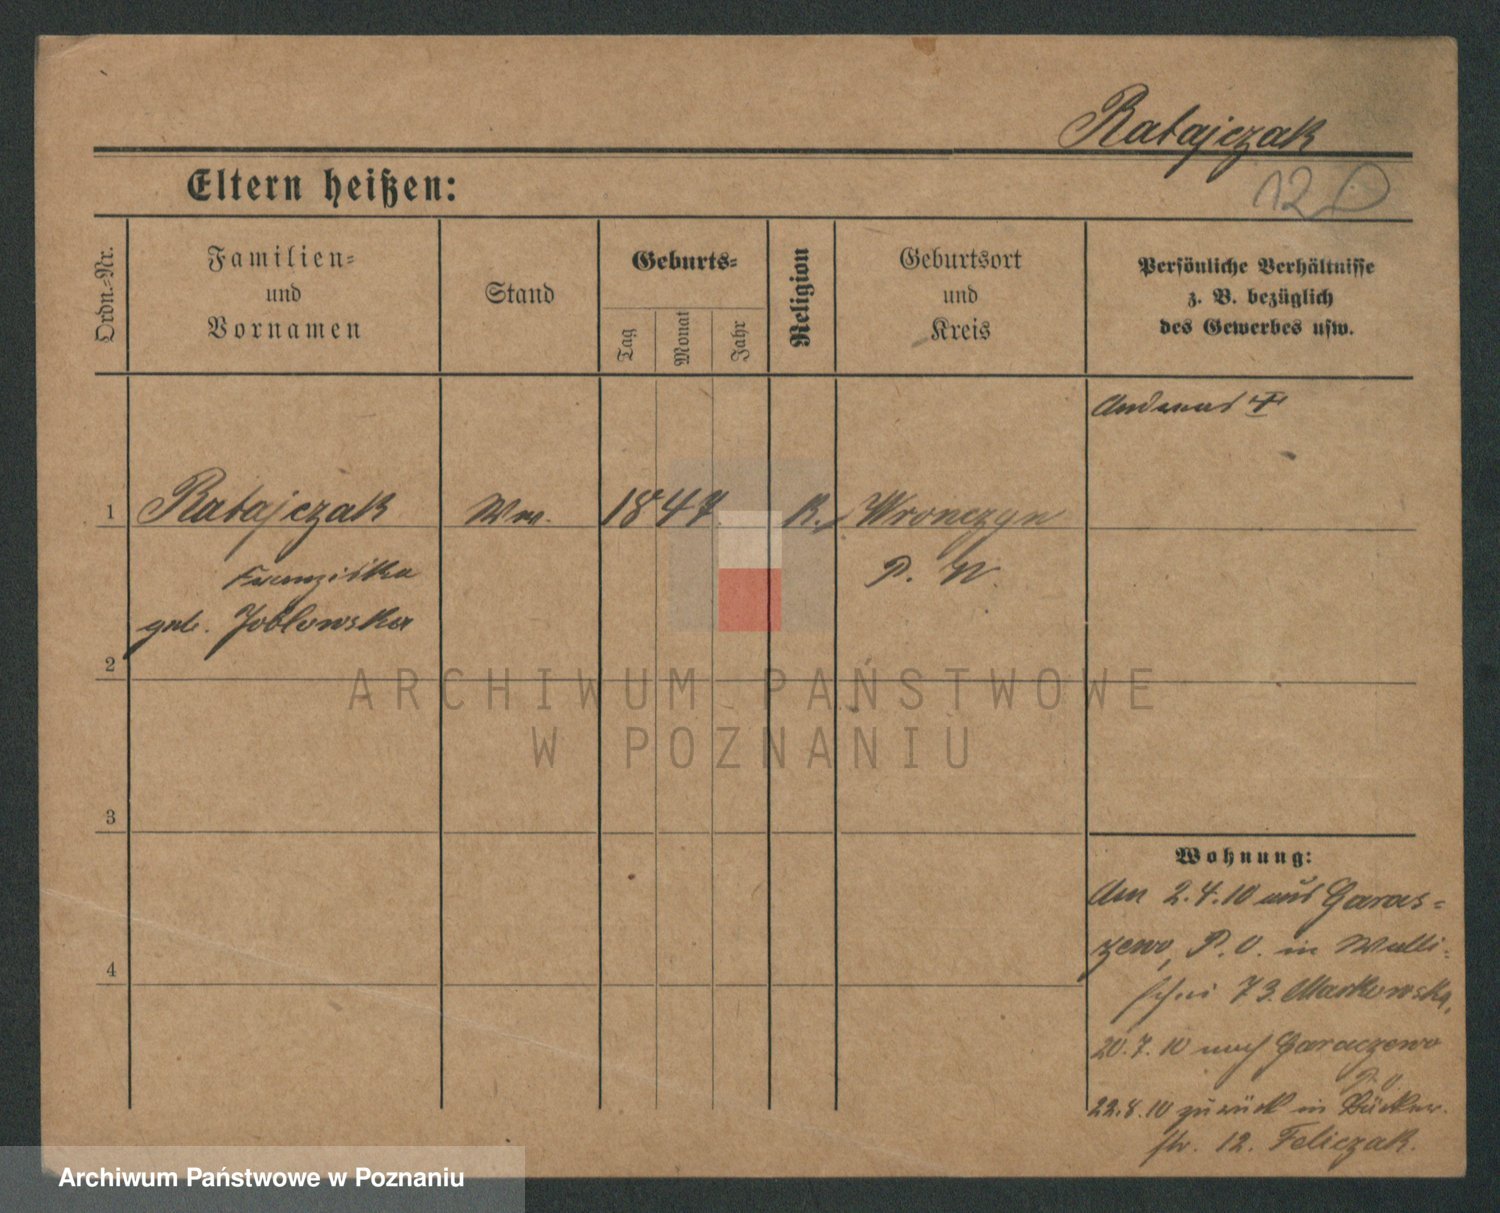 Ratajczak
12
Eltern heißen:
Ordn.-Nr.
Familien-
und
Vornamen
Stand
Geburts-
Tag
Monat
Jahr
Religion
Geburtsort
und
Kreis
Persönliche Verhältnisse
z. B. bezüglich
des Gewerbes usw.
Andreas †
1 Ratajczak Ww. 1847 K. Wronczyn
Franziska P. W.
geb. Joblowska
2
ARCHIWUM PAŃSTWOWE
W POZNANIU
3
4
Wohnung:
Am 2.4.10 aus Garas-
zewo, P.O. in Walli-
schei 73. Markowska,
20.7.10 nach Garaczewo
P.O.
22.8.10 zurück in Bäcker-
str. 12. Feliczak.
Archiwum Państwowe w Poznaniu